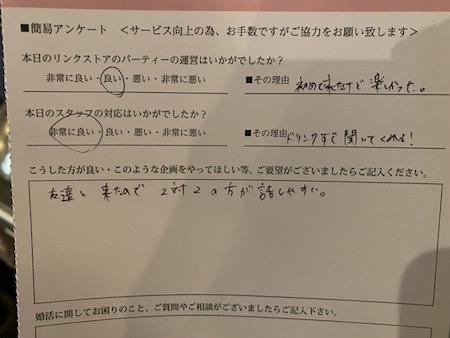 ■簡易アンケート　＜サービス向上の為、お手数ですがご協力をお願い致します＞
本日のリンクストアのパーティーの運営はいかがでしたか？
非常に良い・良い・悪い・非常に悪い　■その理由　初めて来たけど楽しかった。
本日のスタッフの対応はいかがでしたか？
非常に良い・良い・悪い・非常に悪い　■その理由　ドリンクすぐ聞いてくれる！
こうした方が良い・このような企画をやってほしい等、ご要望がございましたらご記入ください。
友達と来たので2対2の方が話しやすい。
婚活に関してお困りのこと、ご質問やご相談がございましたらご記入下さい。